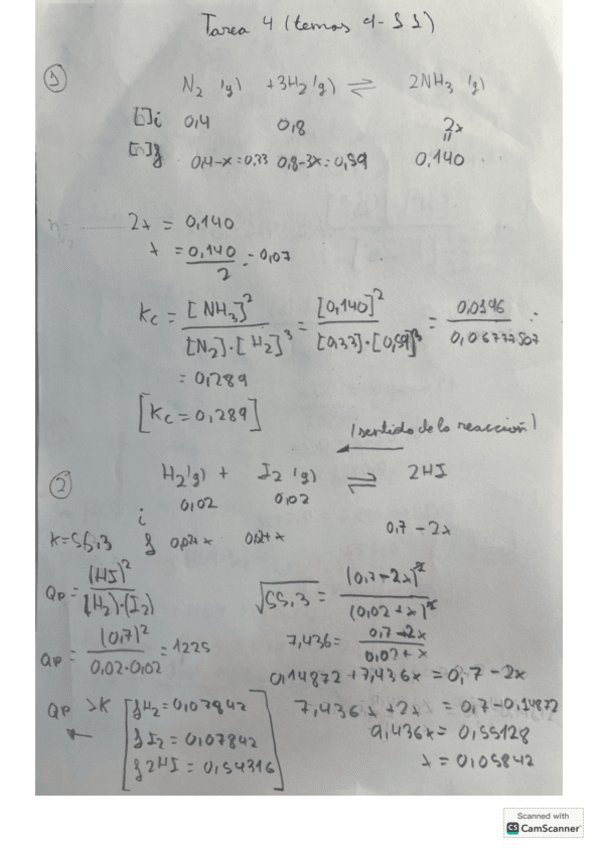 Tarea 4 (temas 9-11)
① N₂ (g) + 3H₂ (g) ⇌ 2NH₃ (g)
[]i 0,4 0,8 2x
[]f 0,4-x = 0,33 0,8-3x = 0,59 0,140
2x = 0,140
x = 0,140/2 = 0,07
Kc = [NH₃]²/[N₂]·[H₂]³ = [0,140]²/[0,33]·[0,59]³ = 0,0196/0,06777507 =
= 0,289
[Kc = 0,289]
(sentido de la reacción)
←
② H₂(g) + I₂ (g) ⇌ 2HI
i 0,02 0,02
K=55,3 f 0,02+x 0,02+x 0,7-2x
Qp = (HI)²/(H₂)·(I₂)
√55,3 = (0,7-2x)²/(0,02+x)²
Qp = (0,7)²/0,02·0,02 = 1225
7,436 = 0,7-2x/0,02+x
0,14872 + 7,436x = 0,7-2x
Qp > K
←
[fH₂ = 0,07842
fI₂ = 0,07842
f2HI = 0,54316]
7,436x + 2x = 0,7-0,14872
9,436x = 0,55128
x = 0,05842
Scanned with
CS CamScanner